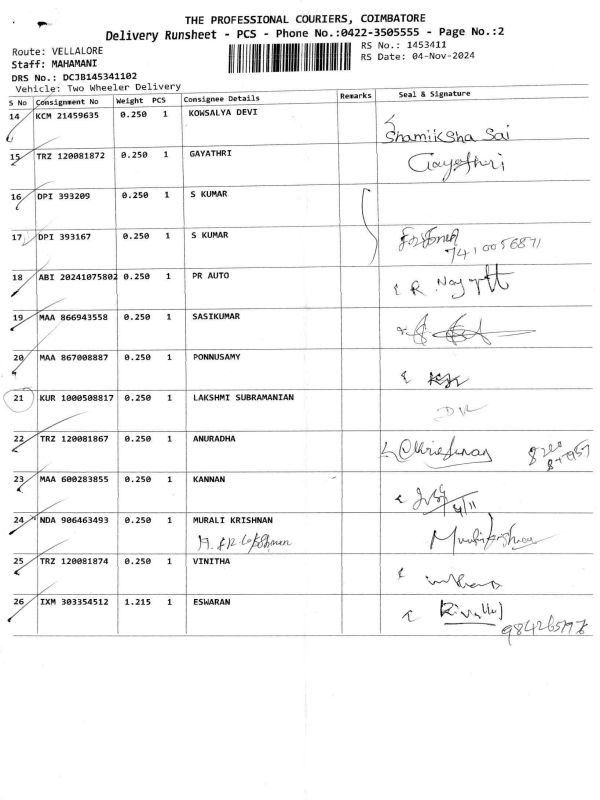 THE PROFESSIONAL COURIERS, COIMBATORE
Delivery Runsheet - PCS - Phone No.:0422-3505555 - Page No.:2
Route: VELLALORE
Staff: MAHAMANI
DRS No.: DCJB145341102
Vehicle: Two Wheeler Delivery
RS No.: 1453411
RS Date: 04-Nov-2024
S No Consignment No Weight PCS Consignee Details Remarks Seal & Signature
14 KCM 21459635 0.250 1 KOWSALYA DEVI
Shamiksha Sai
15 TRZ 120081872 0.250 1 GAYATHRI Gayathri
16 DPI 393209 0.250 1 S KUMAR
17 DPI 393167 0.250 1 S KUMAR
7410056871
18 ABI 20241075802 0.250 1 PR AUTO
19 MAA 866943558 0.250 1 SASIKUMAR
20 MAA 867008887 0.250 1 PONNUSAMY
21 KUR 1000508817 0.250 1 LAKSHMI SUBRAMANIAN
22 TRZ 120081867 0.250 1 ANURADHA
23 MAA 600283855 0.250 1 KANNAN
4/11
24 NDA 906463493 0.250 1 MURALI KRISHNAN
25 TRZ 120081874 0.250 1 VINITHA
26 IXM 303354512 1.215 1 ESWARAN